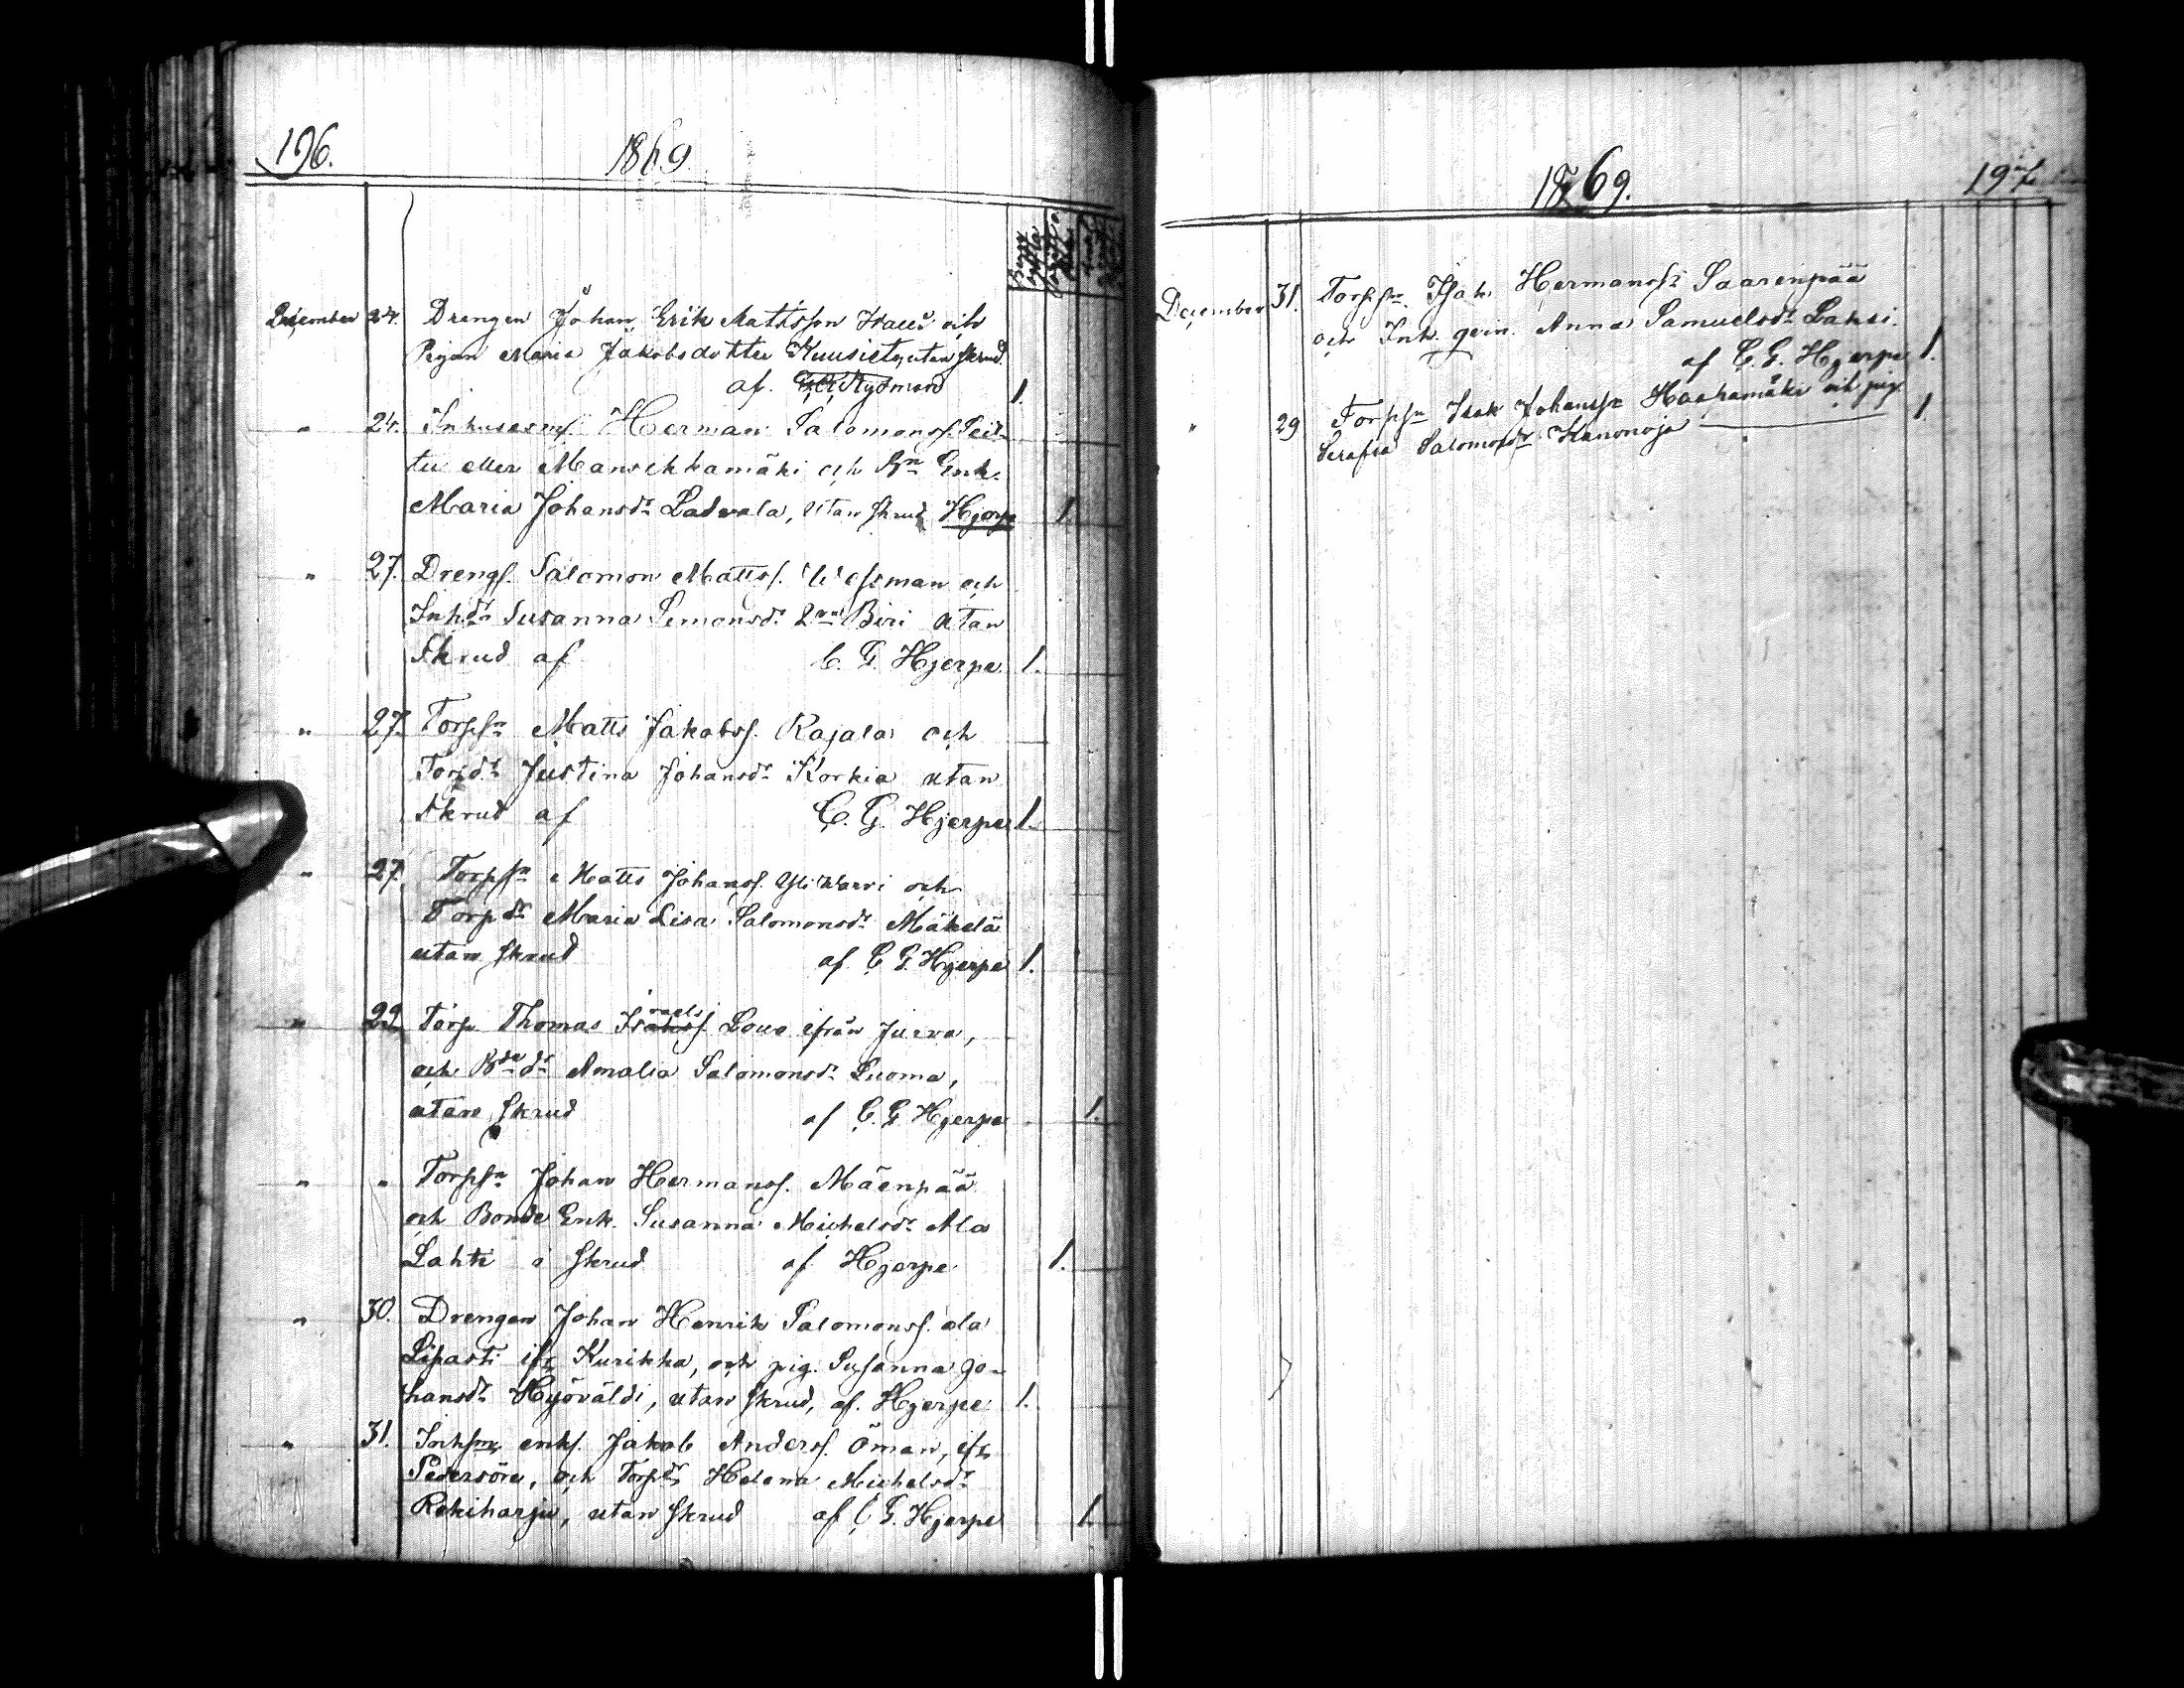 196.
1869.
December 24. Drengen Johan Erik Mattsson och
Pigan Maria Jakobsdotter Kuusisto, utan skrud
af 1.
" 24. Inhuses enkl. Herman Salomonss. Peit-
tu eller Mansikkamäki och Enk.
Maria Johansdr Ladvala, utan skrud Hjerpe 1.
" 27. Drengs. Salomon Mattss. Wessman och
Inhdr Susanna Simonsdr Biri utan
Skrud af C. G. Hjerpe 1.
" 27. Torpsn Matts Jakobss. Rajala och
Torpdr Justina Johansdr Korkia utan
Skrud af C. G. Hjerpe 1.
" 27. Torpsn Matts Johanss. och
Torpdr Maria Lisa Salomonsdr Mäkelä
utan skrud af C. G. Hjerpe 1.
" 29 Torp. Thomas Israels. Louo ifrån Jurva,
och Bdedr Amalia Salomonsdr Luoma,
utan skrud af C. G. Hjerpe 1.
" " Torpsn Johan Hermanss. Mäenpää
och Bonde Enk. Susanna Michelsdr Ala
Lahti i skrud af Hjerpe 1.
" 30. Drengen Johan Henrik Salomonss. ala
Lipasti ifr Kurikka, och pig. Susanna Jo-
hansdr Hyöväldi, utan skrud, af Hjerpe 1.
" 31. Inhsn enkl. Jakob Anderss. Öman, ifr
Pedersöre, och Torpdr Helena Michelsdr
Rekiharju, utan skrud af C G. Hjerpe 1.
1869.
197
December 31. Torpsn Isak Hermanss. Saarenpää
och Inh. qvin. Anna Samuelsdr Laksi.
af C. G. Hjerpe 1.
" 29 Torpsn Isak Johanss. Haapamäki och pig.
Serafia Salomonsdr Kanonoja 1